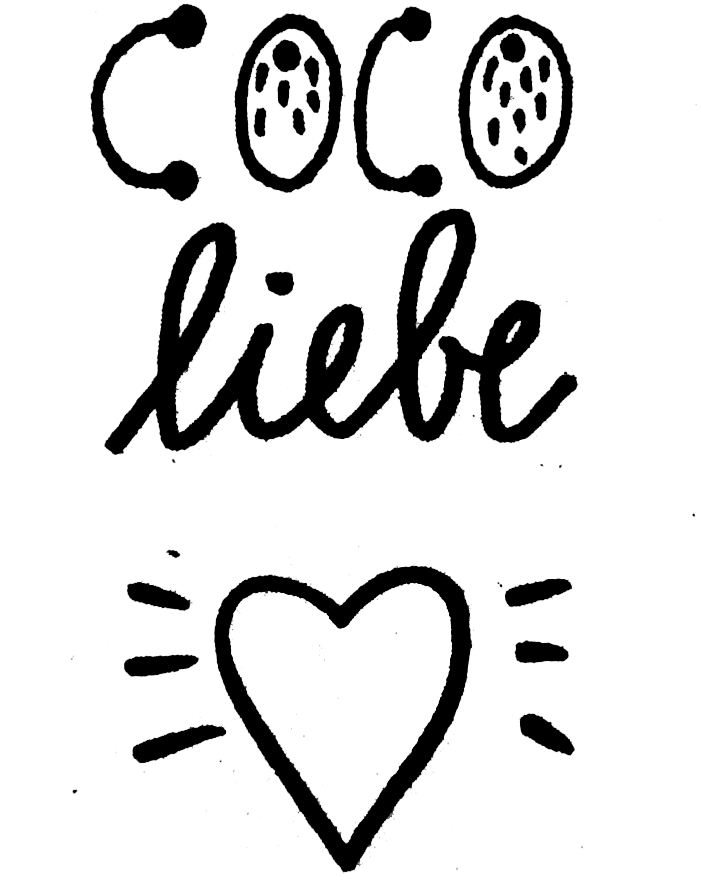 COCO
liebe